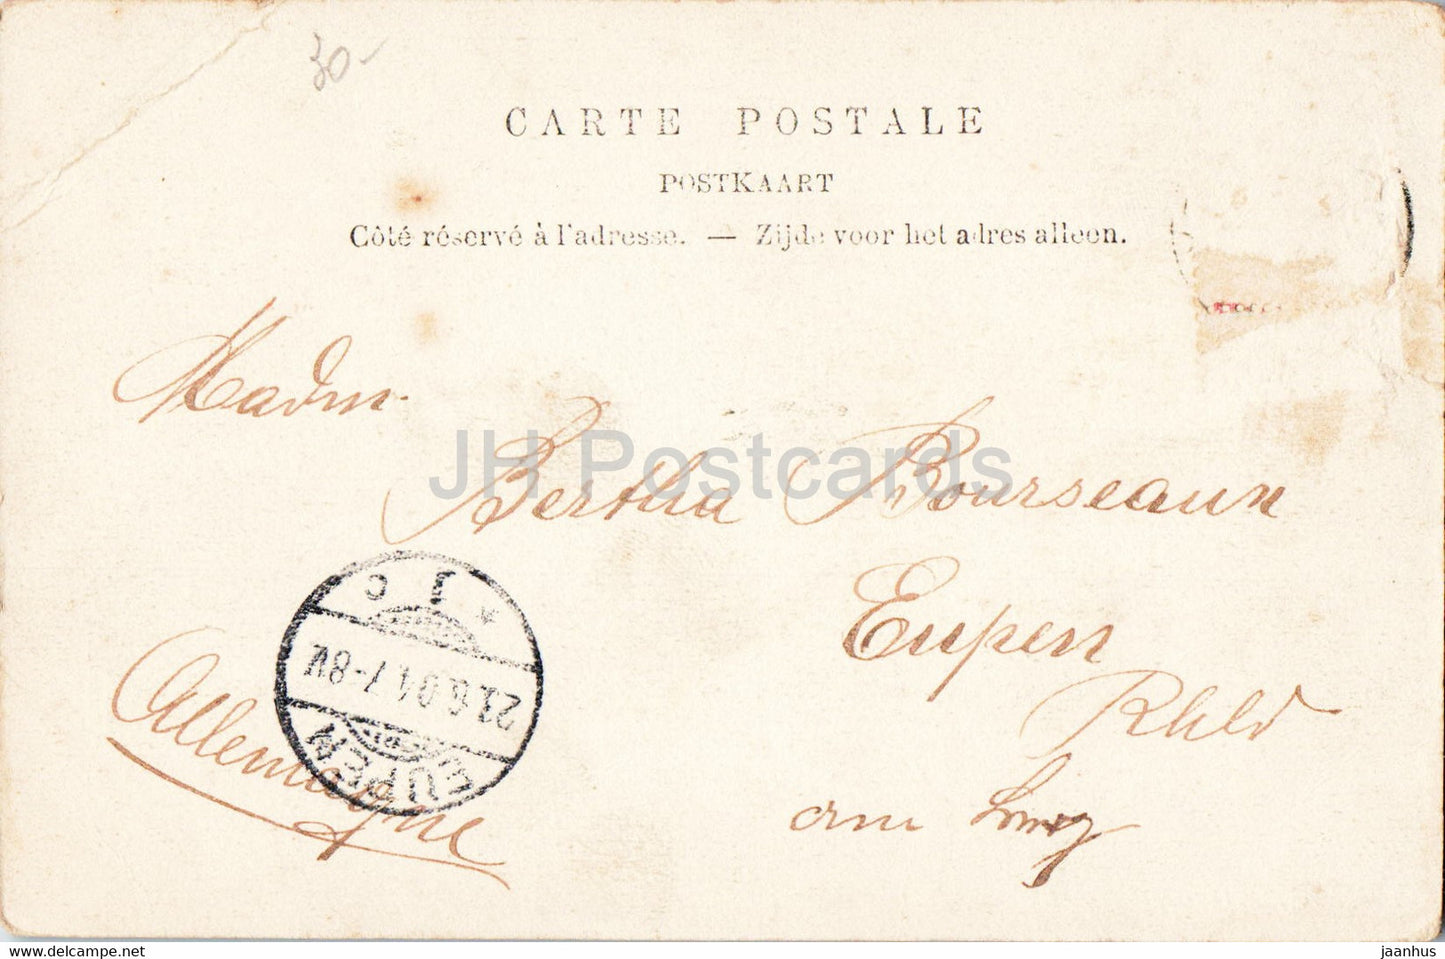 30.-
CARTE POSTALE
POSTKAART
Côté réservé à l'adresse. — Zijde voor het adres alleen.
Madm.
JH Postcards
Bertha Bourseaux
Eupen
Rhld
am
Allemagne
EUPEN
21.6.04.7-8V.
* J c
www.jh-postcards.com
jaanhus